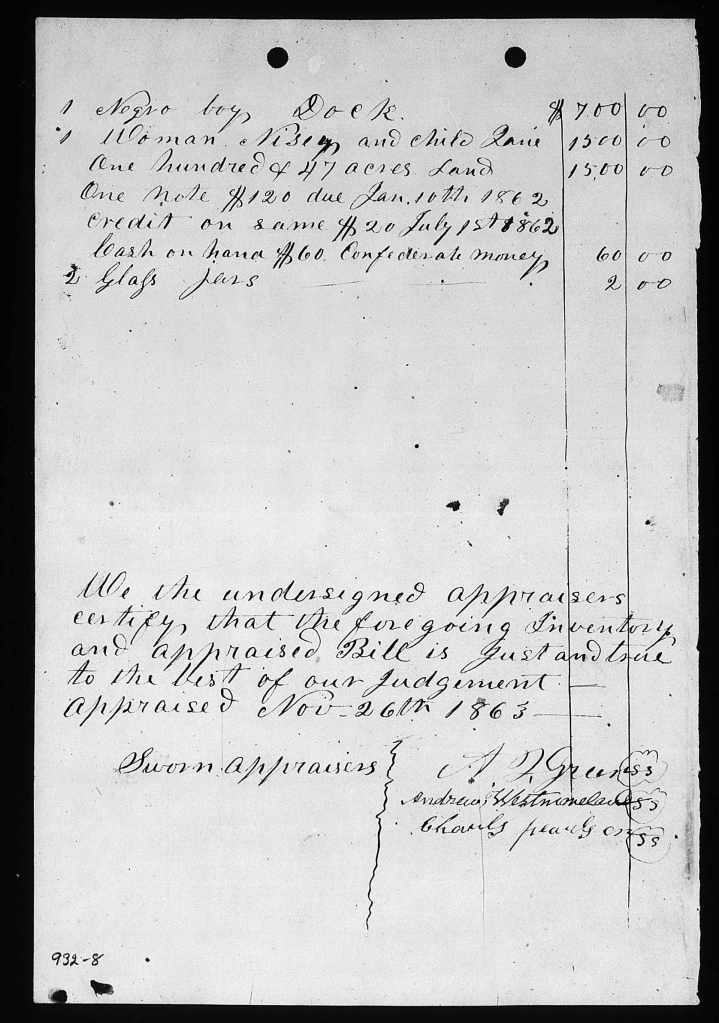 1 Negro boy Dock. $ 700 00
1 Woman Nisey and child Janie 1500 00
One hundred & 47 acres Land 1500 00
One note $120 due Jan. 10th 1862
credit on same $20 July 1st 1862
Cash on hand $60. Confederate money 60 00
2 Glass Jars 2 00
We the undersigned appraisers
certify that the foregoing Inventory
and appraised Bill is Just and true
to the best of our Judgement
appraised Nov 26th 1863
Sworn appraisers
A J Green ss
Andrew ss
Charls ss
932-8